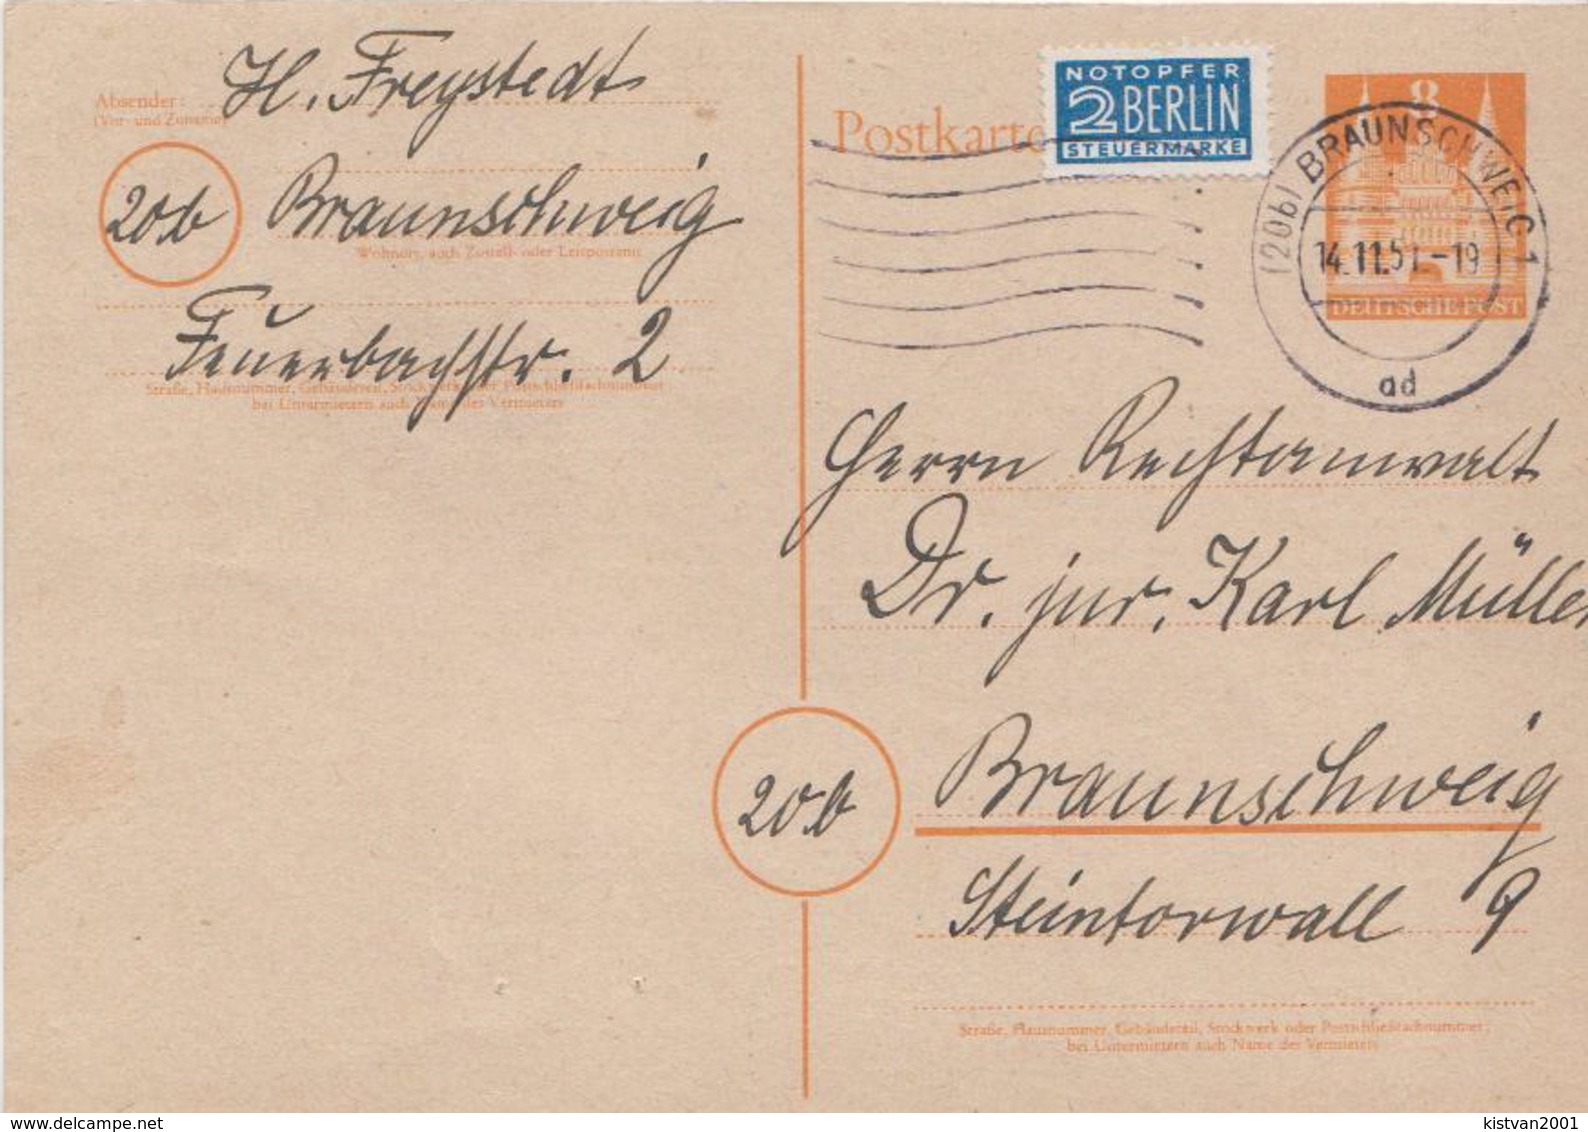 H. Freystedt
Absender:
(Vor- und Zuname)
20b
Braunschweig
Wohnort, auch Zustell- oder Leitpostamt
Feuerbachstr. 2
Straße, Hausnummer, Gebäudeteil, Stockwerk oder Postschließfachnummer
bei Untermietern auch Name des Vermieters
Postkarte
NOTOPFER
2 BERLIN
STEUERMARKE
8
DEUTSCHE POST
(20b) BRAUNSCHWEIG 1
14.11.51.-19
ad
Herrn Rechtanwalt
Dr. jur. Karl Müller
20b
Braunschweig
Steintorwall 9
Straße, Hausnummer, Gebäudeteil, Stockwerk oder Postschließfachnummer;
bei Untermietern auch Name des Vermieters
delcampe.net
kistvan2001